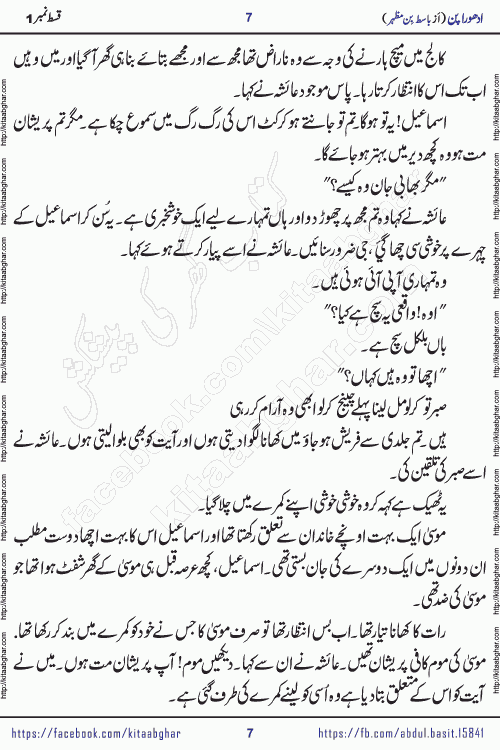 ادھورا پن (از باسط بن مظہر)
7
قسط نمبر 1
کالج میں میچ ہارنے کی وجہ سے وہ ناراض تھا مجھ سے اور مجھے بتائے بنا ہی گھر آ گیا اور میں وہیں
اب تک اس کا انتظار کرتا رہا۔ پاس موجود عائشہ نے کہا۔
اسماعیل! یہ تو ہو گا۔ تم تو جانتے ہو کرکٹ اس کی رگ رگ میں سموع چکا ہے۔ مگر تم پریشان
مت ہو وہ کچھ دیر میں بہتر ہو جائے گا۔
"مگر بھابی جان وہ کیسے؟"
عائشہ نے کہا وہ تم مجھ پر چھوڑ دو اور ہاں تمہارے لیے ایک خوشخبری ہے۔ یہ سُن کر اسماعیل کے
چہرے پر خوشی سی چھا گئی، جی ضرور سنائیں۔ عائشہ نے اسے پیار کرتے ہوئے کہا۔
وہ تمہاری آپی آئی ہوئی ہیں۔
"اوہ! واقعی یہ سچ ہے کیا؟"
ہاں بلکل سچ ہے۔
"اچھا تو وہ ہیں کہاں؟"
صبر تو کر لو مل لینا پہلے چینج کر لو ابھی وہ آرام کر رہی
ہیں۔ تم جلدی سے فریش ہو جاؤ میں کھانا لگوا دیتی ہوں اور آیت کو بھی بلوا لیتی ہوں۔ عائشہ نے
اسے صبر کی تلقین کی۔
یہ ٹھیک ہے کہہ کر وہ خوشی خوشی اپنے کمرے میں چلا گیا۔
موسیٰ ایک بہت اونچے خاندان سے تعلق رکھتا تھا اور اسماعیل اس کا بہت اچھا دوست مطلب
ان دونوں میں ایک دوسرے کی جان بستی تھی۔ اسماعیل، کچھ عرصہ قبل ہی موسیٰ کے گھر شفٹ ہوا تھا جو
موسیٰ کی ضد تھی۔
رات کا کھانا تیار تھا۔ اب بس انتظار تھا تو صرف موسیٰ کا جس نے خود کو کمرے میں بند کر رکھا تھا۔
موسیٰ کی موم کافی پریشان تھیں۔ عائشہ نے ان سے کہا۔ دیکھیں موم! آپ پریشان مت ہوں۔ میں نے
آیت کو اس کے متعلق بتا دیا ہے وہ اُسی کو لینے کمرے کی طرف گئی ہے۔
کتاب گھر کی پیشکش
facebook.com/kitaabghar
kitaabghar.com
http://kitaabghar.com
https://facebook.com/kitaabghar
7
https://fb.com/abdul.basit.15841